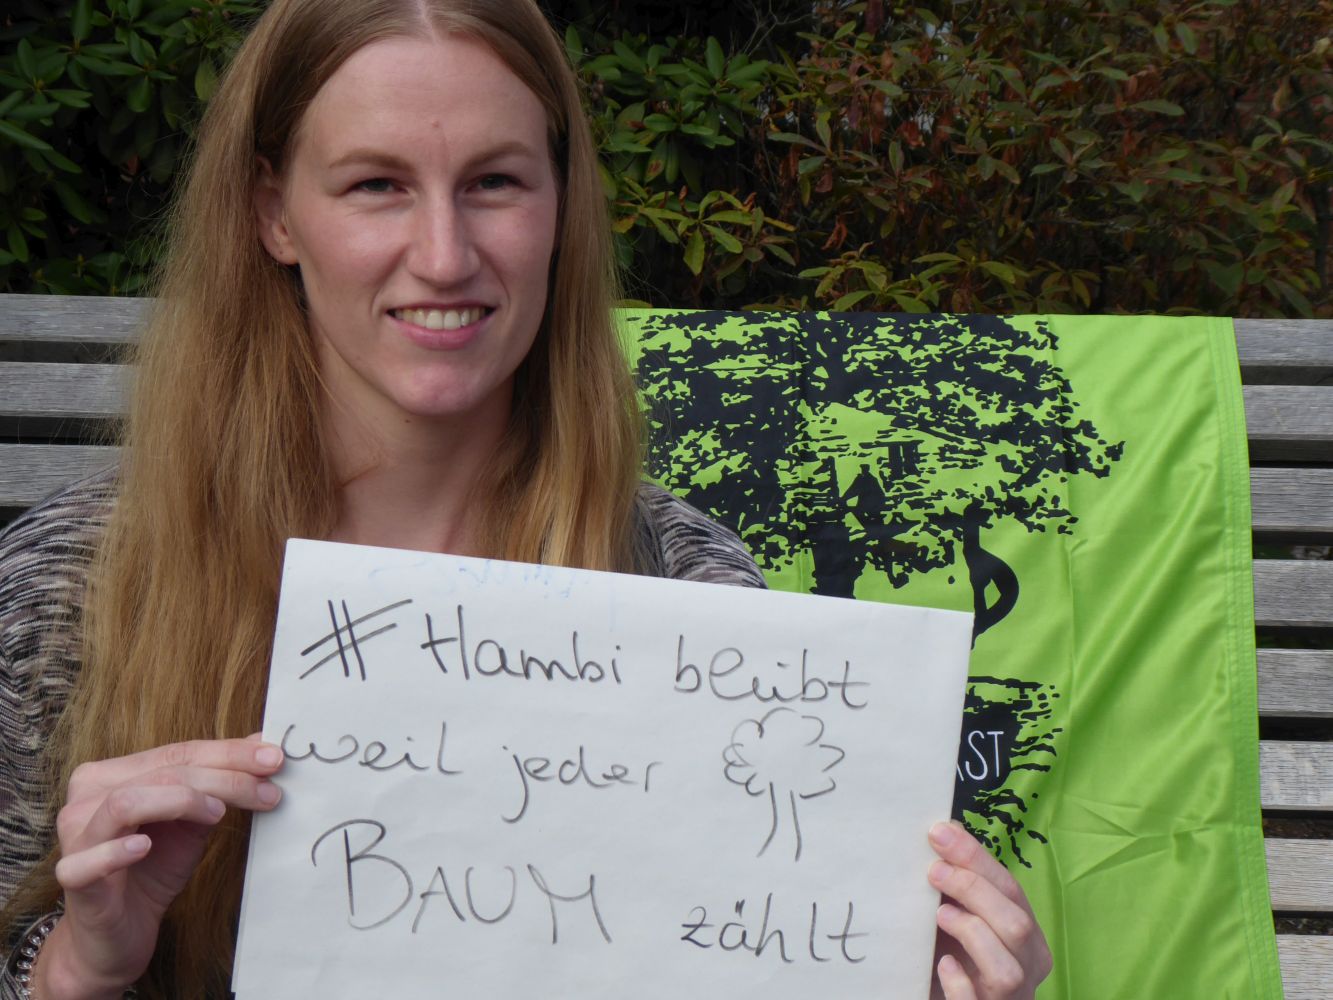 # Hambi bleibt
weil jeder
BAUM zählt